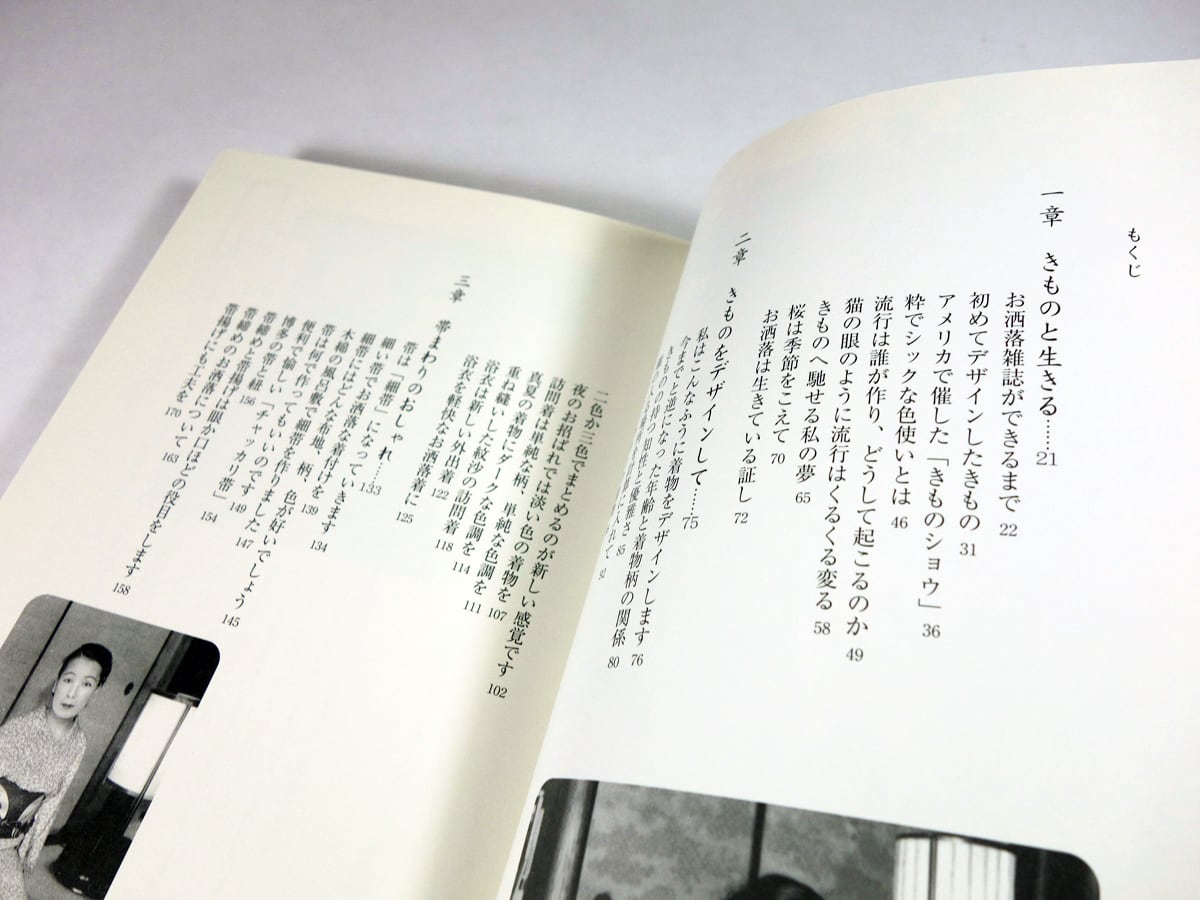 もくじ
一章 きものと生きる……21
お洒落雑誌ができるまで 22
初めてデザインしたきもの 31
アメリカで催した「きものショウ」 36
粋でシックな色使いとは 46
流行は誰が作り、どうして起こるのか 49
猫の眼のように流行はくるくる変る 58
きものへ馳せる私の夢 65
桜は季節をこえて 70
お洒落は生きている証し 72
二章 きものをデザインして……75
私はこんなふうに着物をデザインします 76
今までと逆になった年齢と着物柄の関係 80
きものの持つ知性と優雅さ 85
に入れて 92
二色か三色でまとめるのが新しい感覚です 102
夜のお招ばれでは淡い色の着物を 107
訪問着は単純な柄、単純な色調を 111
真夏の着物にダークな色調を 114
重ね縫いした紋沙の訪問着 118
浴衣は新しい外出着 122
浴衣を軽快なお洒落着に 125
三章 帯まわりのおしゃれ……133
帯は「細帯」になっていきます 134
細い帯でお洒落な着付けを 139
細帯にはどんな布地、柄、色が好いでしょう 145
木綿の風呂敷で細帯を作りました 147
帯は何で作ってもいいのです 149
便利で愉しい「チャッカリ帯」 154
博多の帯と紐 156
帯締めと帯揚げは眼か口ほどの役目をします 158
帯締めのお洒落について 163
帯揚げにも工夫を 170